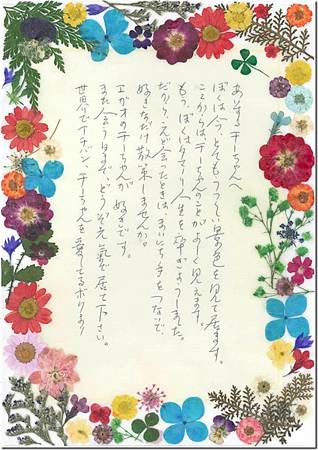 あいするチーちゃんへ
ぼくは今、とてもうつくしい景色を見て居ます。
ここからは、チーちゃんのことがよーく見えます。
もう、ぼくは 人生を ました。
だから、こんど会ったときは、まいにち手をつないで、
好きなだけ散策しませんか。
エガオのチーちゃんが好きです。
また会う日まで、どうぞ元気で居て下さい。
世界でイチバン、チーちゃんを愛してるボクより